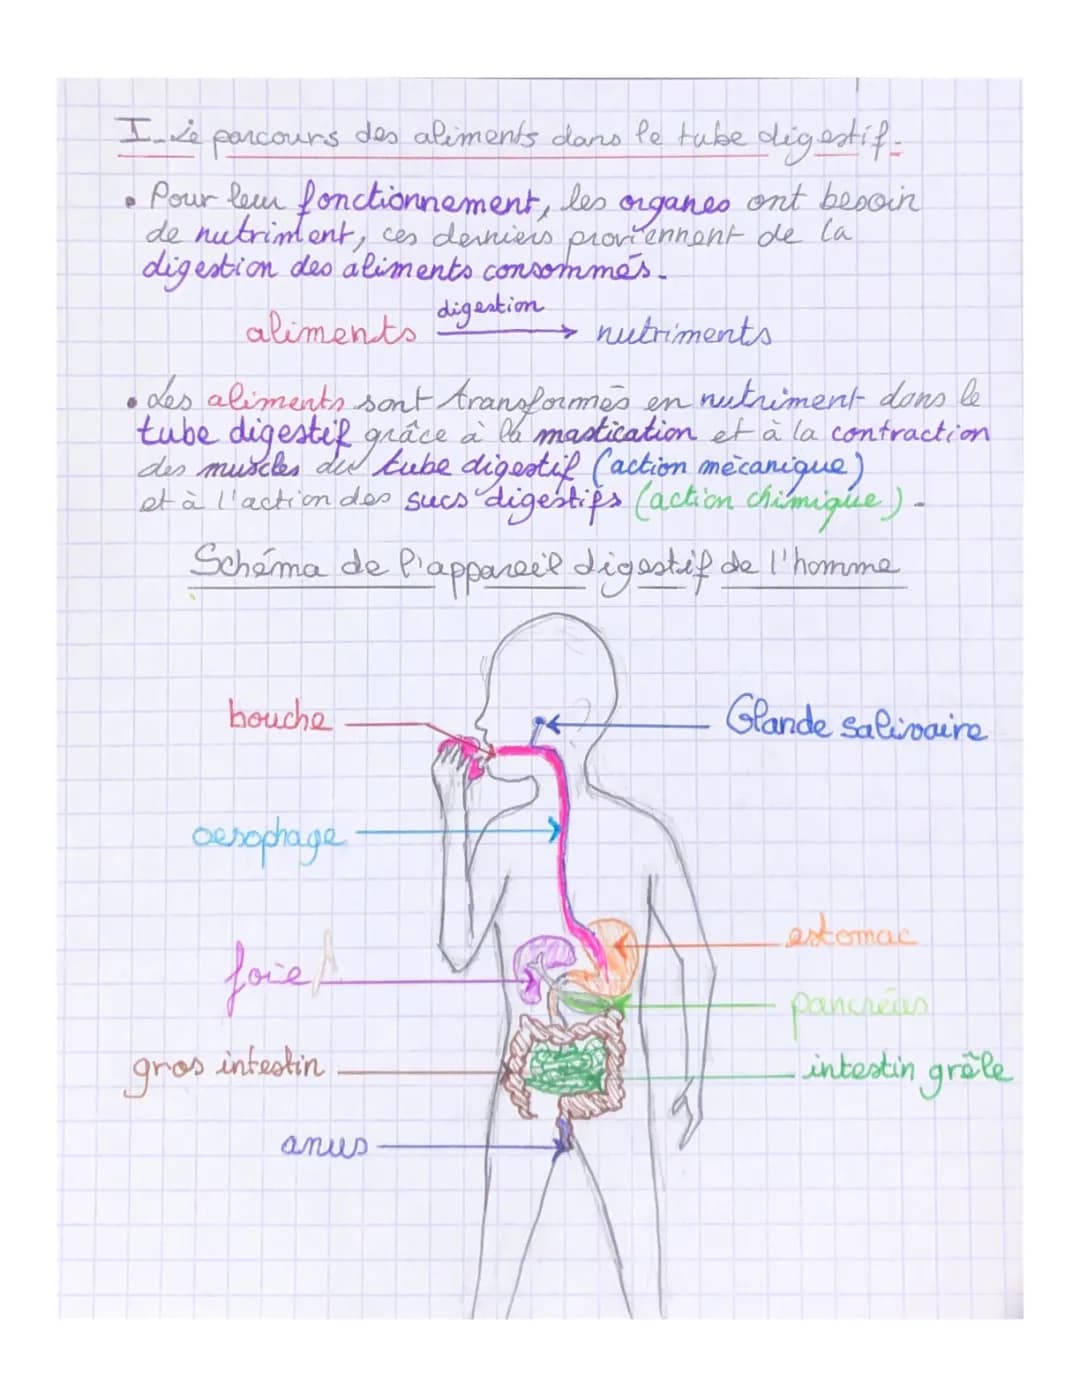 I- Le parcours des aliments dans le tube digestif.
• Pour leur fonctionnement, les organes ont besoin
de nutriment, ces derniers proviennent de la
digestion des aliments consommés.
digestion
aliments → nutriments
• Les aliments sont transformés en nutriment dans le
tube digestif grâce à la mastication et à la contraction
des muscles du tube digestif (action mécanique)
et à l'action des sucs digestifs (action chimique).
Schéma de l'appareil digestif de l'homme
bouche
Glande salivaire
oesophage
estomac
foie
pancréas
gros intestin
intestin grêle
anus